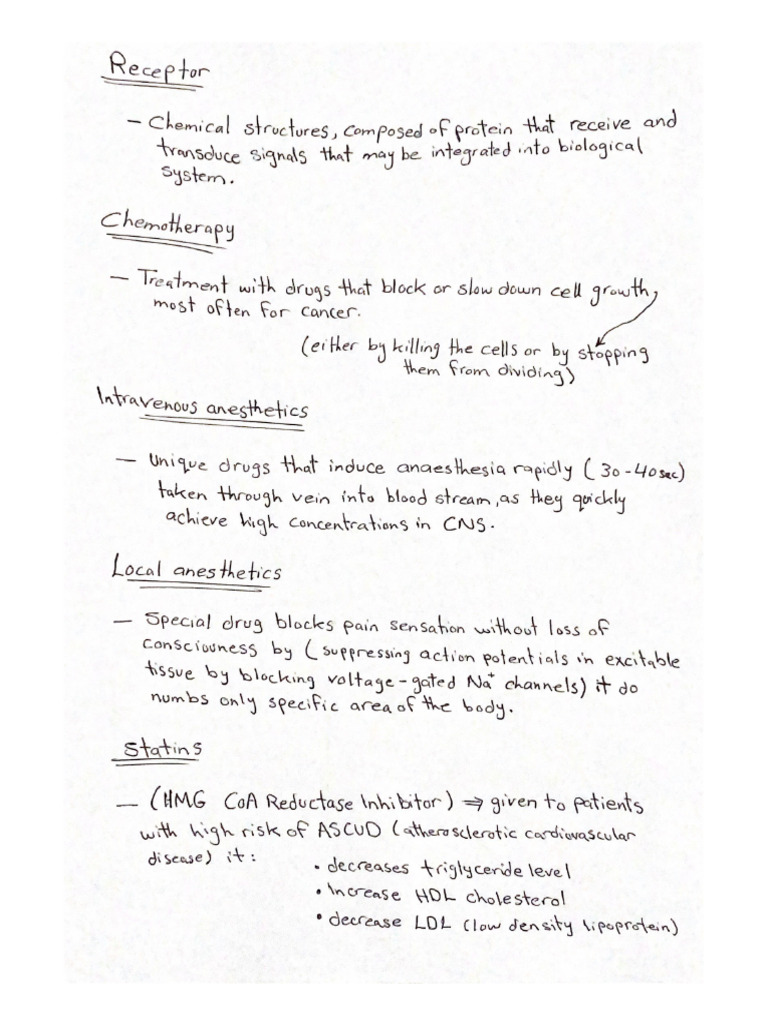 Receptor
- Chemical structures, composed of protein that receive and
transduce signals that may be integrated into biological
system.
Chemotherapy
- Treatment with drugs that block or slow down cell growth,
most often for cancer.
(either by killing the cells or by stopping
them from dividing)
Intravenous anesthetics
- Unique drugs that induce anaesthesia rapidly (30-40sec)
taken through vein into blood stream, as they quickly
achieve high concentrations in CNS.
Local anesthetics
- Special drug blocks pain sensation without loss of
consciouness by (suppressing action potentials in excitable
tissue by blocking voltage-gated Na⁺ channels) it do
numbs only specific area of the body.
Statins
- (HMG CoA Reductase Inhibitor) ⇒ given to patients
with high risk of ASCVD (atherosclerotic cardiovascular
disease) it:
• decreases triglyceride level
• Increase HDL cholesterol
• decrease LDL (low density lipoprotein)